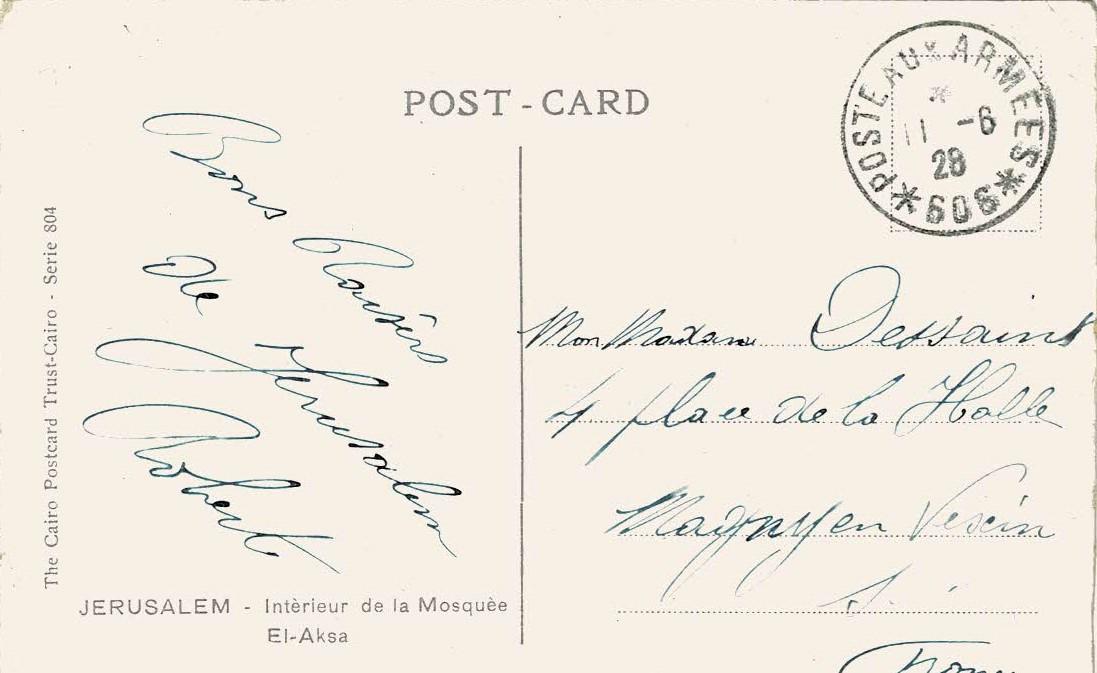 POST-CARD
POSTE AUX ARMÉES
11 -6
28
* 606 *
Bons Baisers
de Jerusalem
Robert
Mon Madame Dessaint
4 place de la Halle
Magny en Vexin
The Cairo Postcard Trust-Cairo - Serie 804
JERUSALEM - Intèrieur de la Mosquèe
El-Aksa